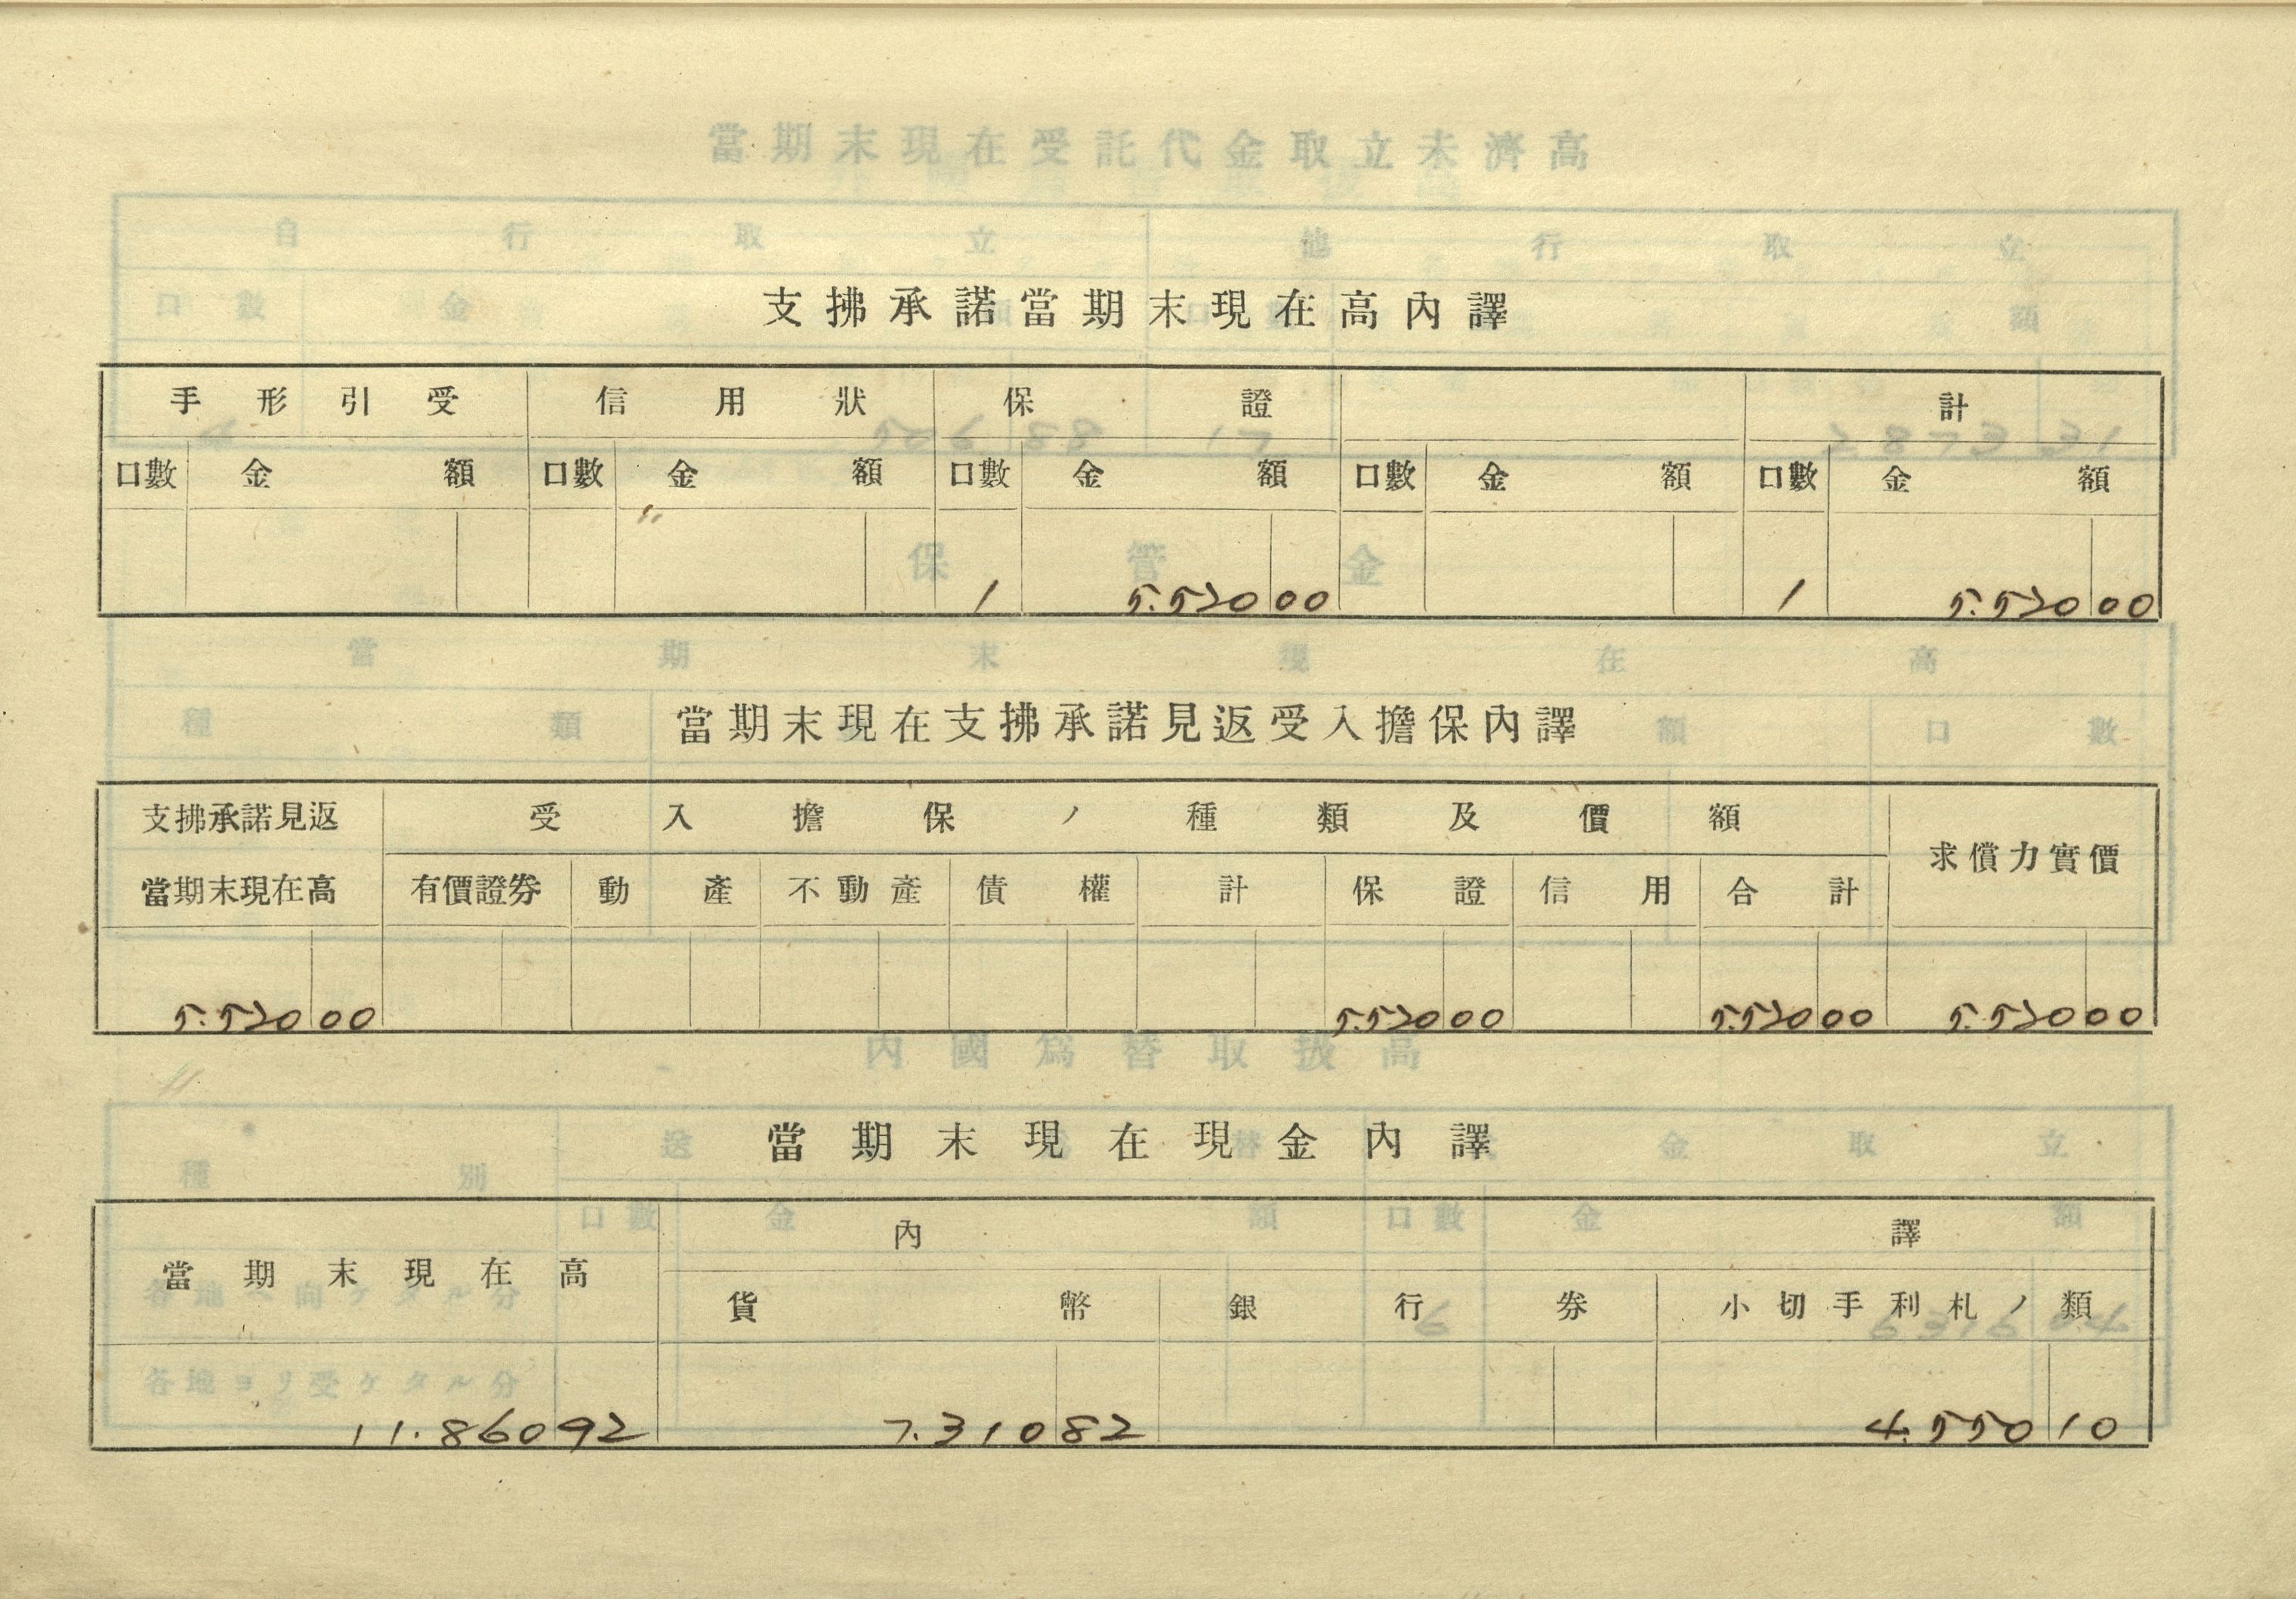 支拂承諾當期末現在高內譯
手形引受 信用狀 保證 計
口數 金額 口數 金額 口數 金額 口數 金額 口數 金額
1 5.520 00 1 5.520 00
當期末現在支拂承諾見返受入擔保內譯
支拂承諾見返 受入擔保ノ種類及價額 求償力實價
當期末現在高 有價證券 動產 不動產 債權 計 保證 信用 合計
5.520 00 5.520 00 5.520 00 5.520 00
當期末現在現金內譯
當期末現在高 內譯
貨幣 銀行券 小切手利札ノ類
11.860 92 7.310 82 4.550 10